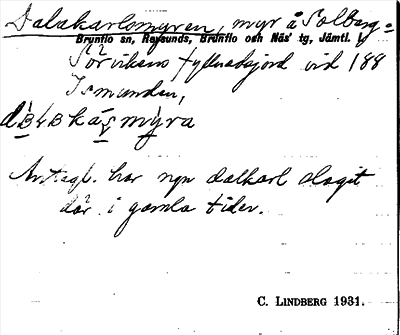 Dalakarlsmyren, myr å Solberg=
Brunflo sn, Revsunds, Brunflo och Näs' tg, Jämtl. l.
Sörvikens fyllnadsjord vid 188
Ismunden,
Antagl. har ngn dalkarl slagit
där i gamla tider.
C. LINDBERG 1931.